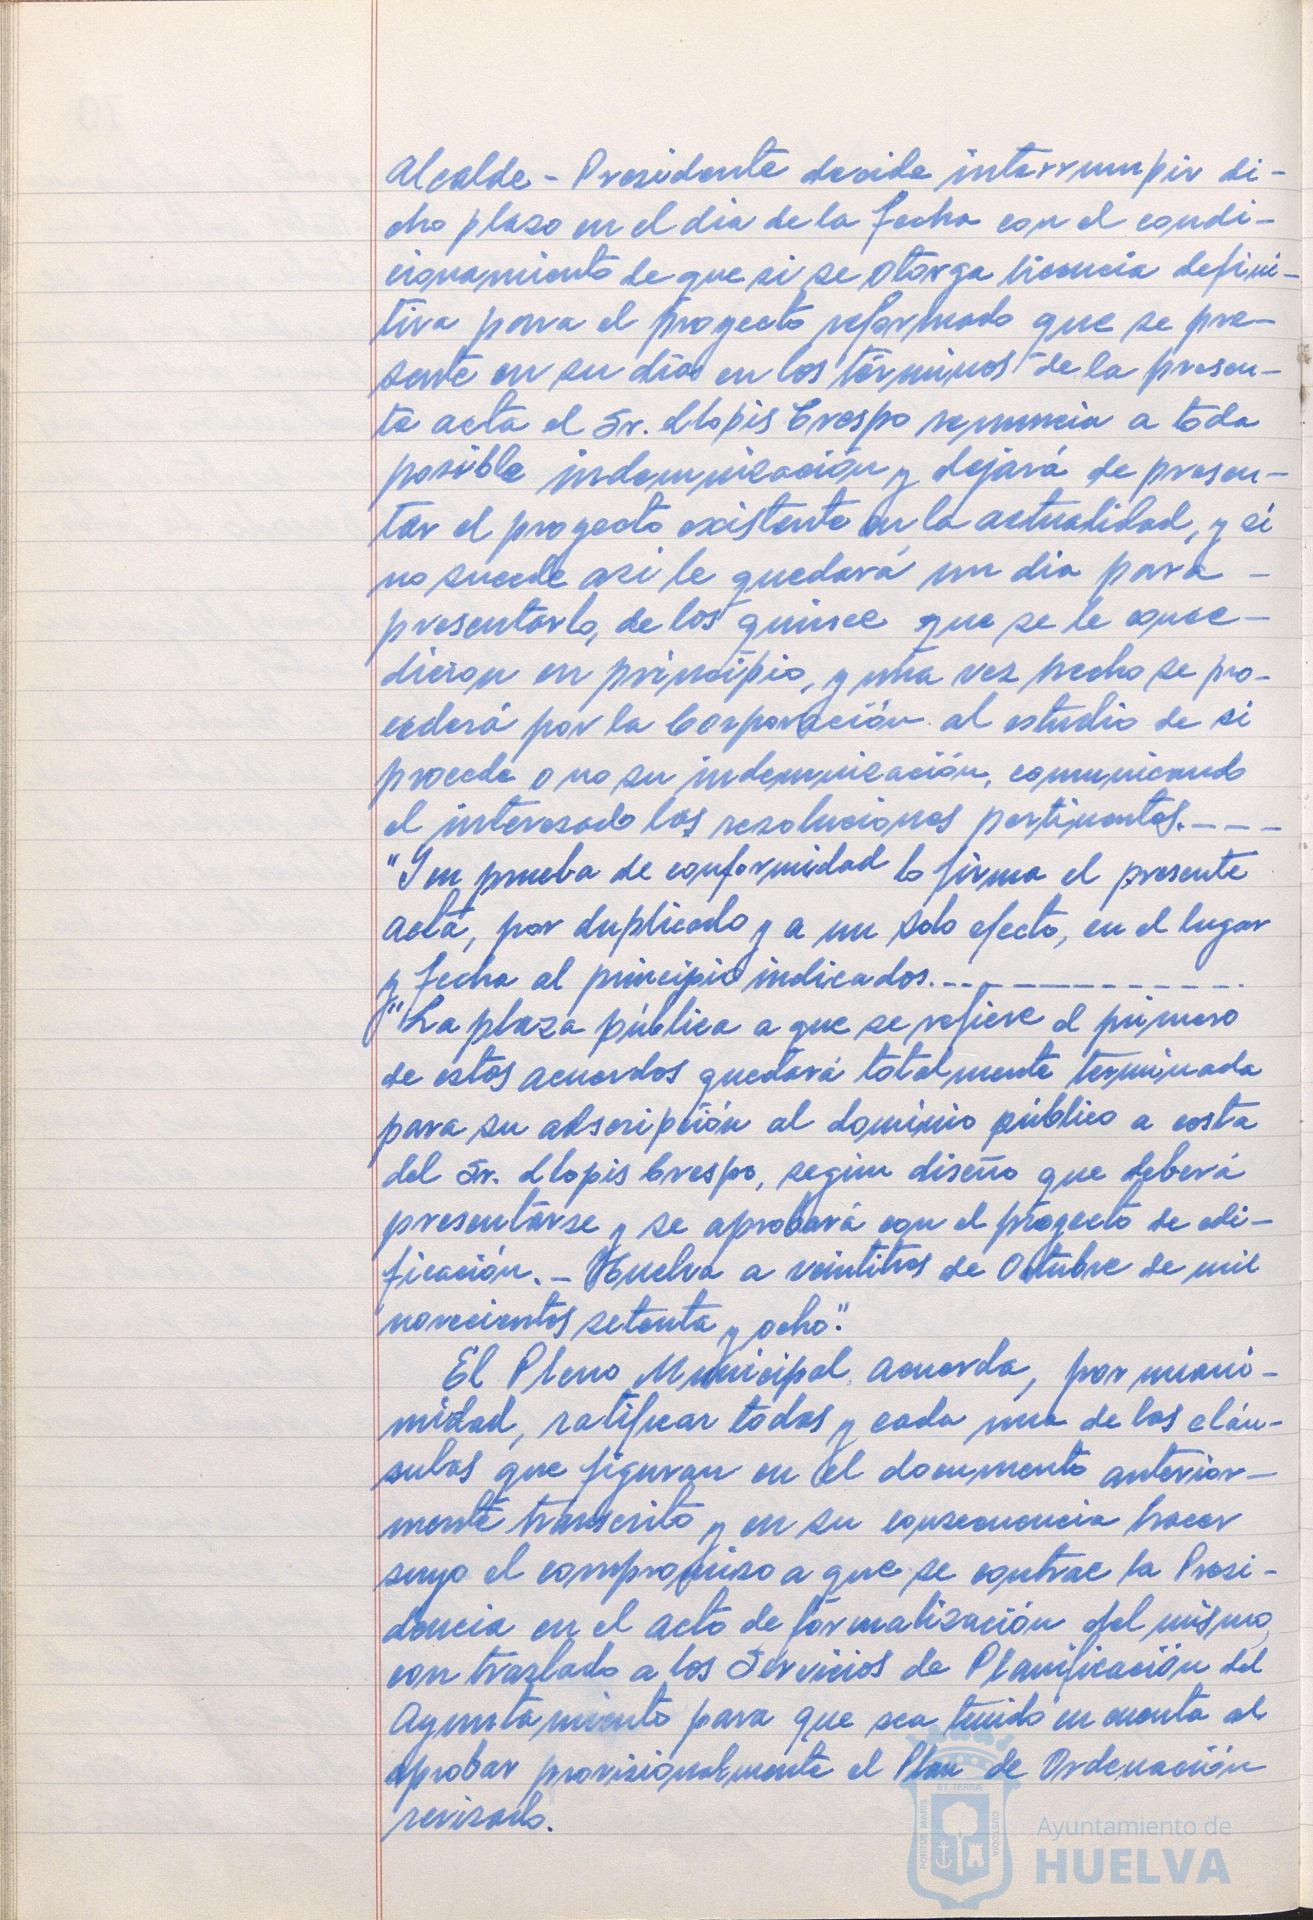 Alcalde - Presidente decide interrumpir di-
cho plazo en el dia de la fecha con el condi-
cionamiento de que si se otorga licencia defini-
tiva para el proyecto reformado que se pre-
sente en su día en los términos de la presen-
te acta el Sr. Llopis Crespo renuncia a toda
posible indemnización y dejará de presen-
tar el proyecto existente en la actualidad, y si
no sucede asi le quedará un dia para -
presentarlo, de los quince que se le conce-
dieron en principio, y una vez hecho se pro-
cederá por la Corporación al estudio de si
procede o no su indemnización, comunicando
el interesado las resoluciones pertinentes.----
"Y en prueba de conformidad lo firma el presente
acta, por duplicado y a un solo efecto, en el lugar
y fecha al principio indicados.-------------
"La plaza pública a que se refiere el primero
de estos acuerdos quedará totalmente terminada
para su adscripción al dominio público a costa
del Sr. Llopis Crespo, según diseño que deberá
presentarse y se aprobará con el proyecto de edi-
ficación. - Huelva a veintitres de Octubre de mil
novecientos setenta y ocho".
El Pleno Municipal acuerda, por unani-
midad, ratificar todas y cada una de las cláu-
sulas que figuran en el documento anterior-
mente transcrito y en su consecuencia hacer
suyo el compromiso a que se contrae la Presi-
dencia en el acto de formalización del mismo,
con traslado a los Servicios de Planificación del
Ayuntamiento para que sea tenido en cuenta al
aprobar provisionalmente el Plan de Ordenación
revisado.
PORTUS MARIS ET TERRAE CUSTODIA
Ayuntamiento de
HUELVA